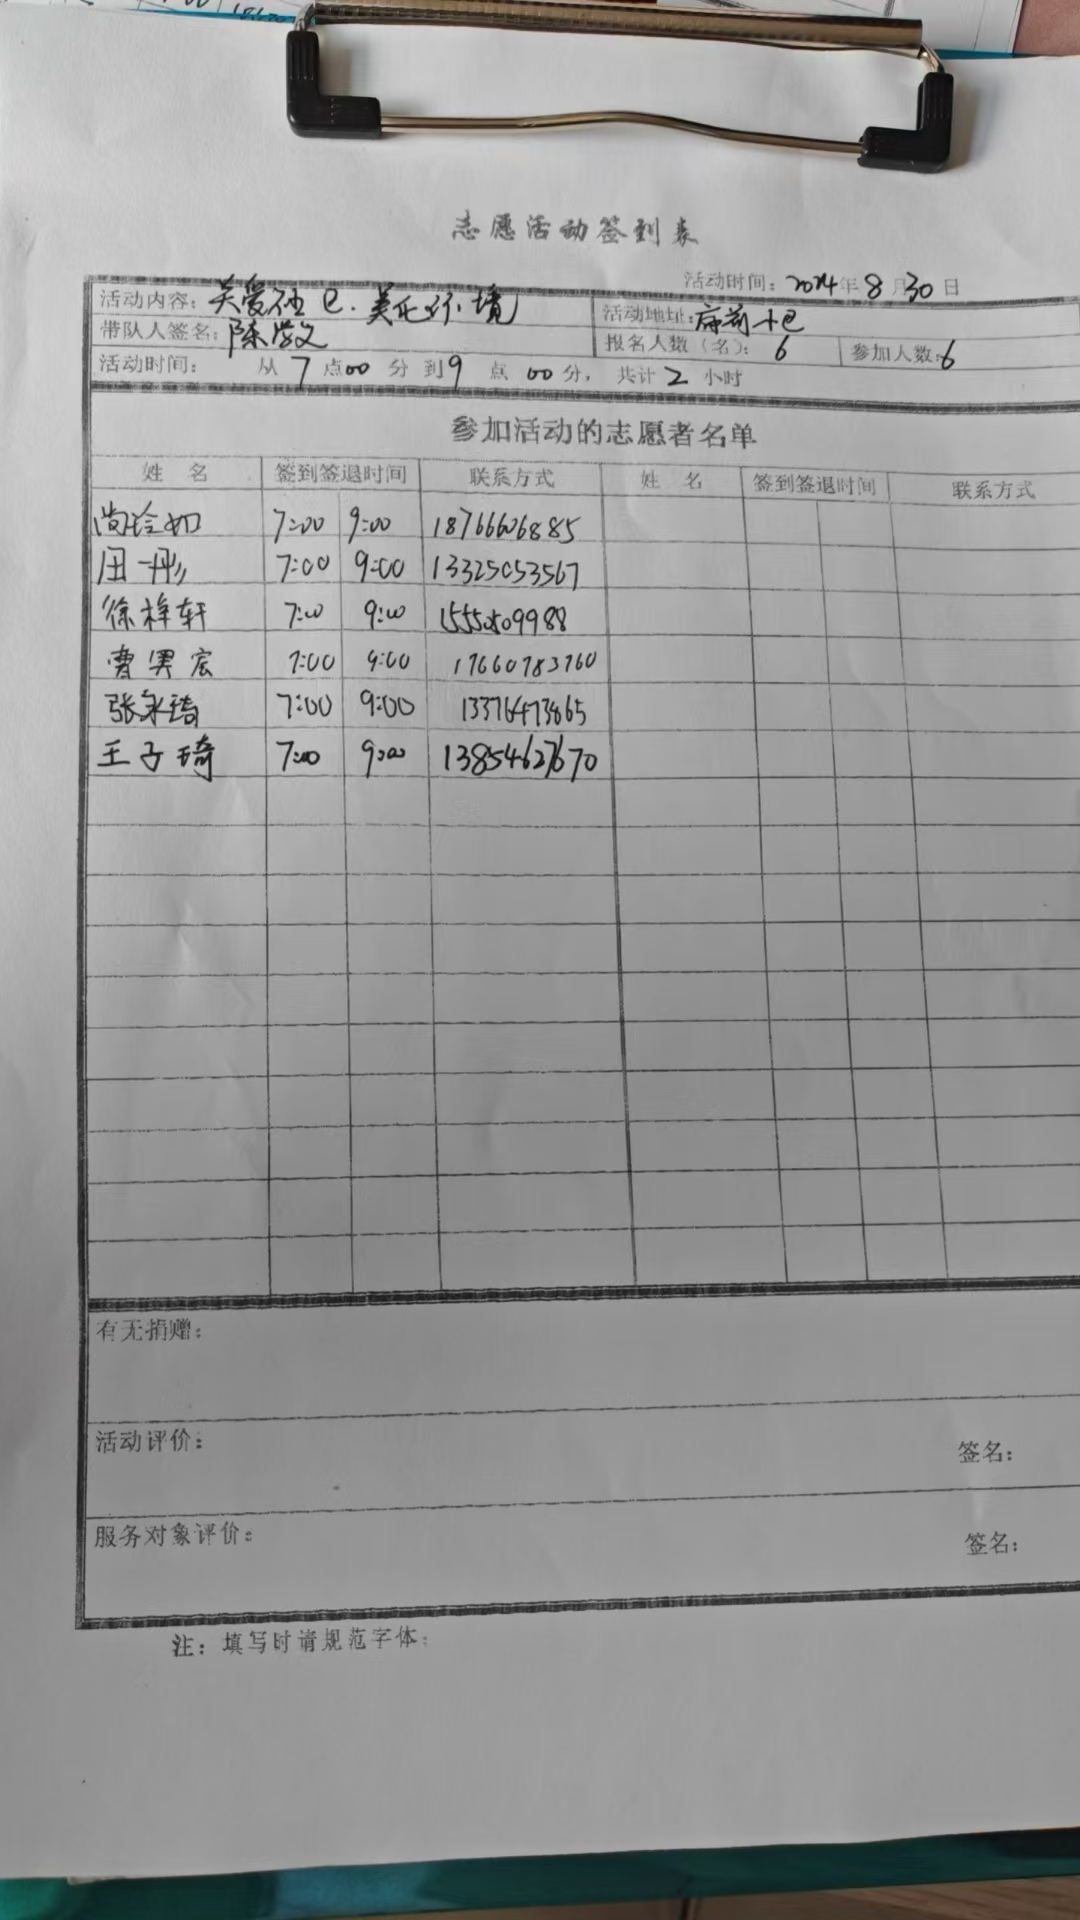 志愿活动签到表
活动时间：2024年8月30日
活动内容：关爱社区.美化环境 活动地址：府前小区
带队人签名：陈学文 报名人数（名）：6 参加人数：6
活动时间： 从7点00分到9点00分，共计2小时
参加活动的志愿者名单
姓 名 签到签退时间 联系方式 姓 名 签到签退时间 联系方式
尚玲如 7:00 9:00 18766606885
田一彤 7:00 9:00 13325053567
徐梓轩 7:00 9:00 15550509988
曹男宏 7:00 9:00 17660783760
张永琦 7:00 9:00
王子琦 7:00 9:00 13854627670
有无捐赠：
活动评价：
签名：
服务对象评价：
签名：
注：填写时请规范字体；